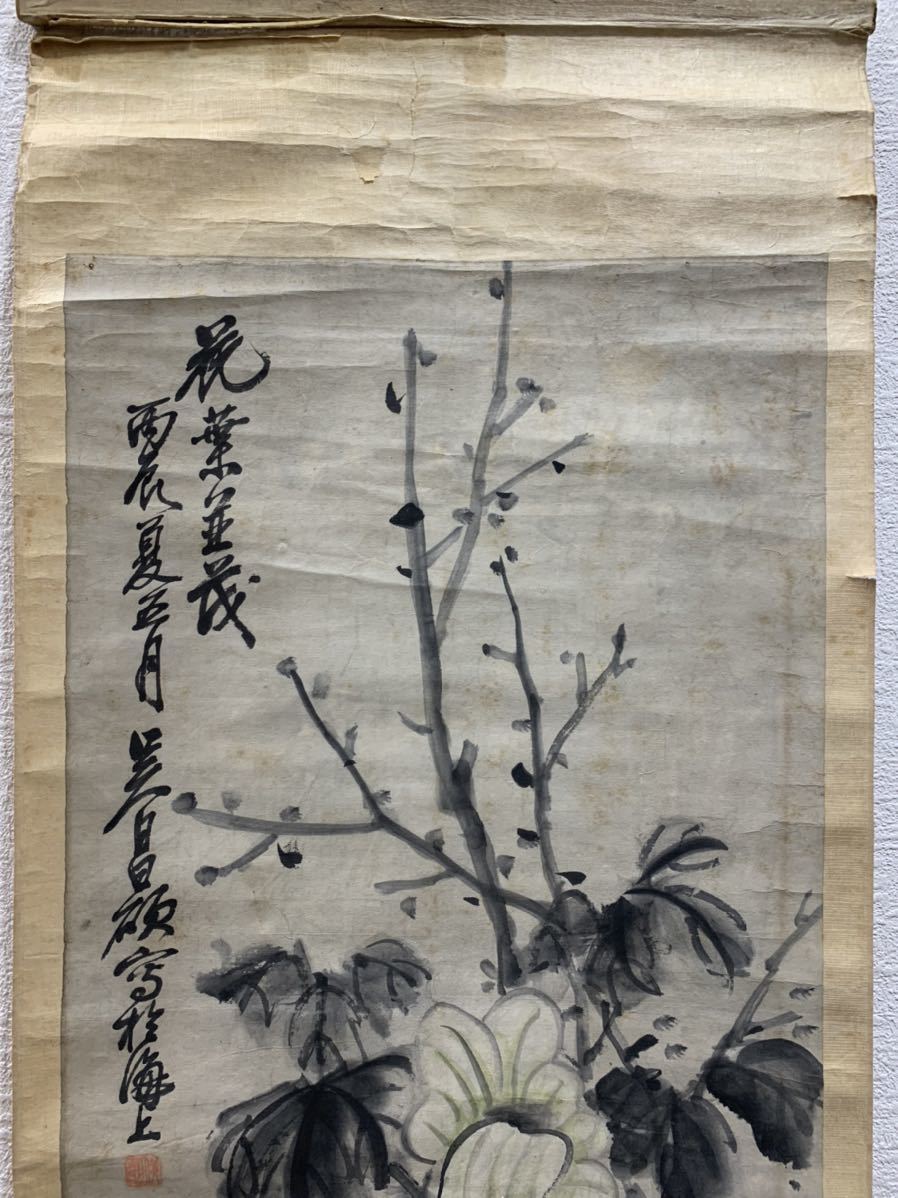 花葉並茂
丙辰夏五月吳昌碩寫於海上